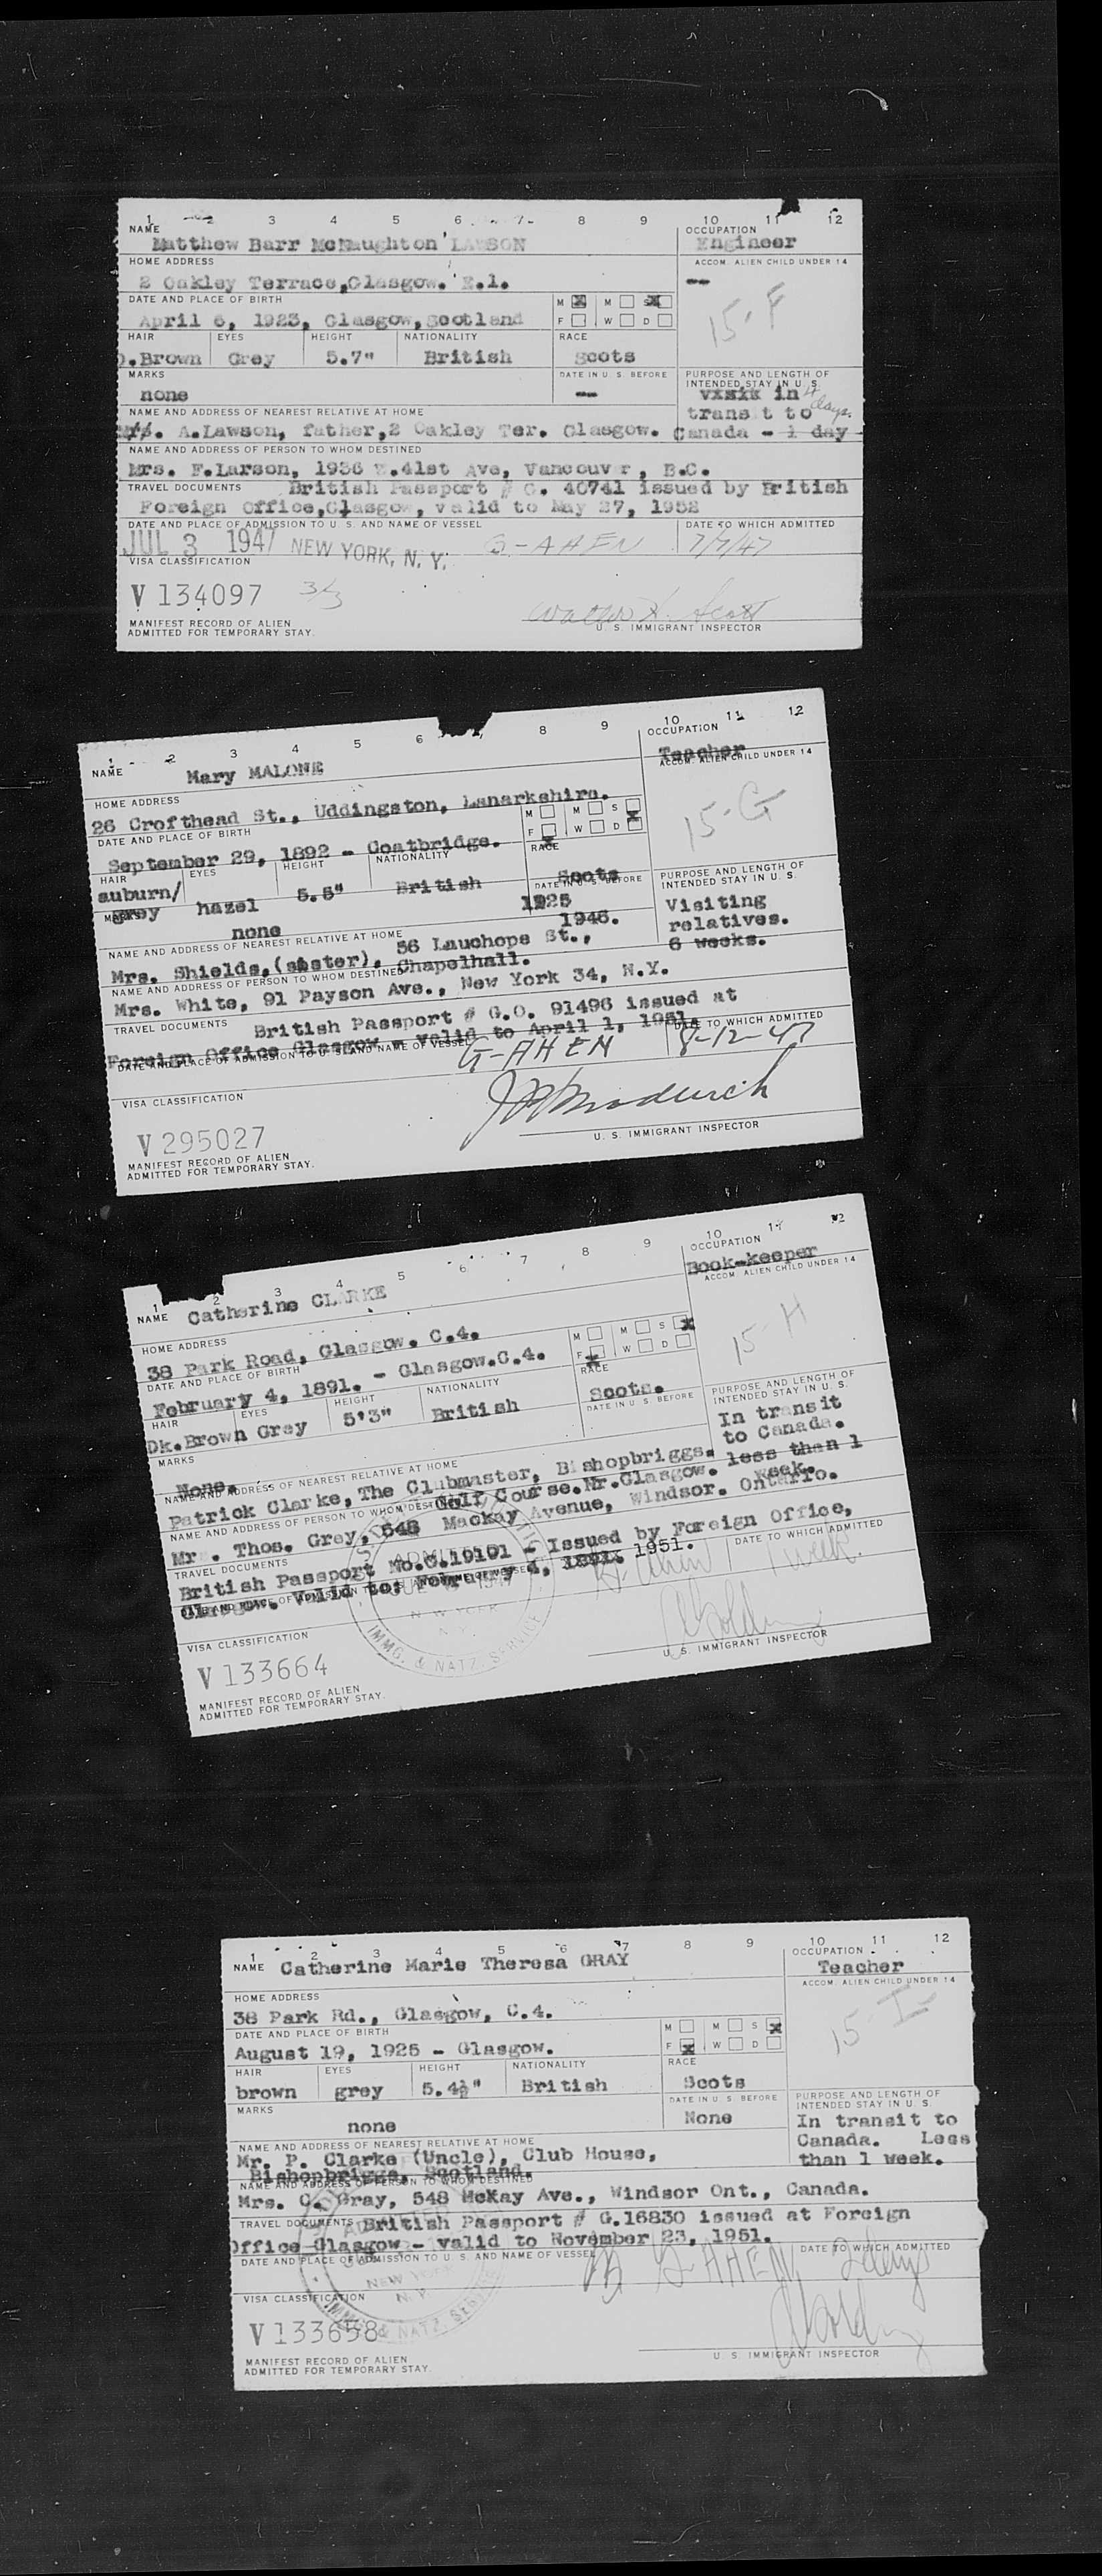 1 2 3 4 5 6 7 8 9 10 11 12
NAME OCCUPATION
Matthew Barr McNaughton LAWSON Engineer
HOME ADDRESS ACCOM. ALIEN CHILD UNDER 14
2 Oakley Terrace,Glasgow. E.1. --
DATE AND PLACE OF BIRTH M M S
April 6, 1923, Glasgow,Scotland F W D 15-F
HAIR EYES HEIGHT NATIONALITY RACE
D.Brown Grey 5.7" British Scots
MARKS DATE IN U. S. BEFORE PURPOSE AND LENGTH OF INTENDED STAY IN U. S.
none -- in 4 days.
NAME AND ADDRESS OF NEAREST RELATIVE AT HOME transit to
A.Lawson, father,2 Oakley Ter. Glasgow. Canada - 1 day
NAME AND ADDRESS OF PERSON TO WHOM DESTINED
Mrs. F.Larson, 1936 E.41st Ave, Vancouver, B.C.
TRAVEL DOCUMENTS British Passport # G. 40741 issued by British
Foreign Office,Glasgow, valid to May 27, 1952
DATE AND PLACE OF ADMISSION TO U. S. AND NAME OF VESSEL DATE TO WHICH ADMITTED
JUL 3 1947 NEW YORK, N. Y. G-AHEN 7/7/47
VISA CLASSIFICATION
V 134097 3/3
Walter X. Scott
MANIFEST RECORD OF ALIEN
ADMITTED FOR TEMPORARY STAY.
U. S. IMMIGRANT INSPECTOR
1 2 3 4 5 6 8 9 10 11 12
NAME Mary MALONE OCCUPATION
Teacher
HOME ADDRESS ACCOM. ALIEN CHILD UNDER 14
26 Crofthead St., Uddingston, Lanarkshire.
DATE AND PLACE OF BIRTH M M S
F W D 15-G
September 29, 1892 - Coatbridge.
HAIR EYES HEIGHT NATIONALITY RACE
auburn/ grey hazel 5.5" British Scots
MARKS none DATE IN U. S. BEFORE 1925 1946.
PURPOSE AND LENGTH OF INTENDED STAY IN U. S.
Visiting
relatives.
6 weeks.
NAME AND ADDRESS OF NEAREST RELATIVE AT HOME 56 Lauchope St.,
Mrs. Shields,(sister), Chapelhall.
NAME AND ADDRESS OF PERSON TO WHOM DESTINED
Mrs. White, 91 Payson Ave., New York 34, N.Y.
TRAVEL DOCUMENTS British Passport # G.O. 91496 issued at
Foreign Office Glasgow - valid to April 1, 1951.
DATE AND PLACE OF ADMISSION TO U. S. AND NAME OF VESSEL DATE TO WHICH ADMITTED
G-AHEN 8-12-47
VISA CLASSIFICATION
V 295027
MANIFEST RECORD OF ALIEN
ADMITTED FOR TEMPORARY STAY.
U. S. IMMIGRANT INSPECTOR
1 2 3 4 5 6 7 8 9 10 11 12
NAME Catherine CLARKE OCCUPATION
Book-keeper
HOME ADDRESS ACCOM. ALIEN CHILD UNDER 14
38 Park Road, Glasgow. C.4.
DATE AND PLACE OF BIRTH M M S
F W D 15 H
February 4, 1891. - Glasgow.C.4.
HAIR EYES HEIGHT NATIONALITY RACE
Dk.Brown Grey 5'3" British Scots.
MARKS DATE IN U. S. BEFORE
None.
PURPOSE AND LENGTH OF INTENDED STAY IN U. S.
In transit
to Canada.
less than 1
week.
NAME AND ADDRESS OF NEAREST RELATIVE AT HOME
Patrick Clarke, The Clubmaster, Bishopbriggs.
Golf Course.Nr.Glasgow.
NAME AND ADDRESS OF PERSON TO WHOM DESTINED
Mr . Thos. Grey, 548 Mackay Avenue, Windsor. Ontario.
TRAVEL DOCUMENTS
British Passport No.G.19191 - Issued by Foreign Office,
Glasgow. Valid to: February 4, 1951.
DATE AND PLACE OF ADMISSION TO U. S. AND NAME OF VESSEL DATE TO WHICH ADMITTED
1 week.
ADMITTED
NEW YORK
N. Y.
IMMG. & NATZ. SERVICE
VISA CLASSIFICATION
V 133664
MANIFEST RECORD OF ALIEN
ADMITTED FOR TEMPORARY STAY.
U. S. IMMIGRANT INSPECTOR
1 2 3 4 5 6 7 8 9 10 11 12
NAME Catherine Marie Theresa GRAY OCCUPATION
Teacher
HOME ADDRESS ACCOM. ALIEN CHILD UNDER 14
38 Park Rd., Glasgow, C.4.
DATE AND PLACE OF BIRTH M M S
August 19, 1925 - Glasgow. F W D 15-I
HAIR EYES HEIGHT NATIONALITY RACE
brown grey 5.4½" British Scots
MARKS DATE IN U. S. BEFORE PURPOSE AND LENGTH OF INTENDED STAY IN U. S.
none None In transit to
Canada. Less
than 1 week.
NAME AND ADDRESS OF NEAREST RELATIVE AT HOME
Mr. P. Clarke (Uncle), Club House,
Bishopbriggs, Scotland.
NAME AND ADDRESS OF PERSON TO WHOM DESTINED
Mrs. C. Gray, 548 McKay Ave., Windsor Ont., Canada.
TRAVEL DOCUMENTS British Passport # G.16830 issued at Foreign
Office Glasgow - valid to November 23, 1951.
DATE AND PLACE OF ADMISSION TO U. S. AND NAME OF VESSEL DATE TO WHICH ADMITTED
G-AHEN
NEW YORK
N. Y.
IMMG. & NATZ. SERVICE
VISA CLASSIFICATION
V 133658
MANIFEST RECORD OF ALIEN
ADMITTED FOR TEMPORARY STAY.
U. S. IMMIGRANT INSPECTOR